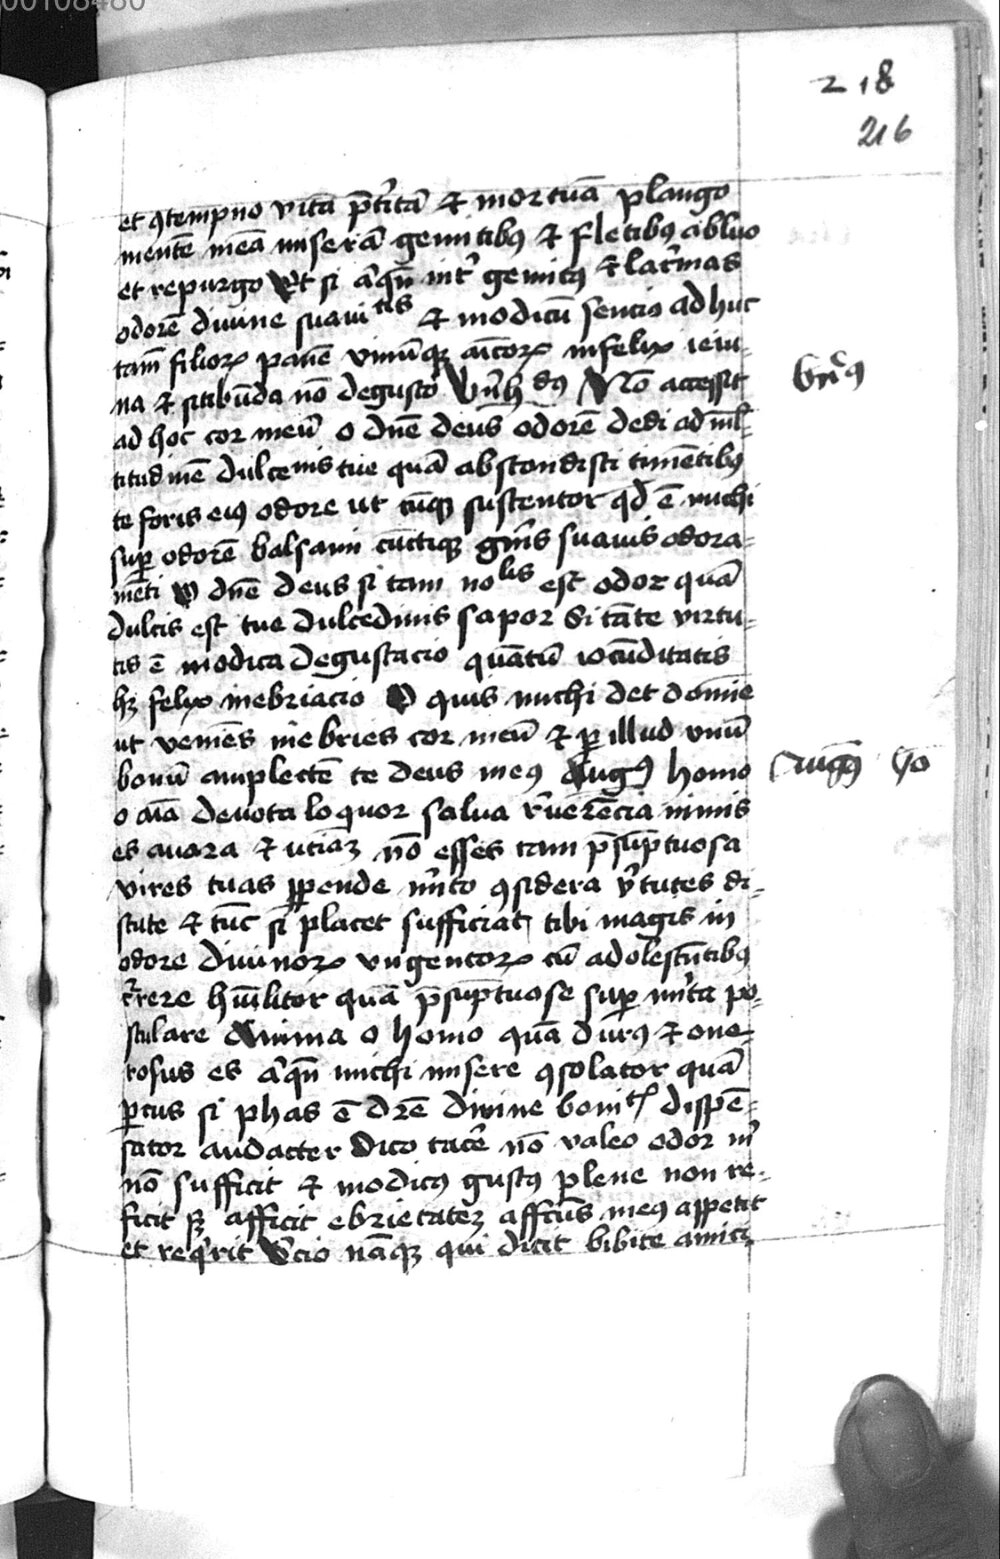 00108480
218
216
et ꝯtempno vitā p̄t'itā et mortuā plango
mentē meā miserā gemitibꝯ et fletibꝯ abluo
et repurgo Et si a'q̄n int' gemitꝯ et lac'mas
odorē divine suavitatis et modicū sencio adhuc
tam̄ filioꝝ panē vinūqꝫ amicoꝝ infelix ieiu-
na et sitibūda nō degusto Bern̄hdꝯ Nō accessit
ad hoc cor meū o dn̄e deus odorē dedi ad ml̄-
titudinē dulcenis tue quā abscondisti timētibꝯ
te foris eiꝯ odore ut cūqꝫ sustentor qd̄ ē michi
suꝑ odorē balsami cūctiqꝫ gn̄is suavis odora-
mēti O dn̄e deus si tam nobilis est odor quā
dulcis est tue dulcedinis sapor Si tāte virtu-
tis ē modica degustacio quātū iocūditatis
hꝫ felix inebriacio O quis michi det domīe
ut veniēs inebries cor meū et ꝑ illud unū
bonū amplectē te deus meꝯ Augꝯ homo
o aīa devota loquor salva r'verēcia nimis
es avara et utinā nō esses tam p̄sūptuosa
vires tuas ꝑpende m'ito ꝯsidera v'tutes di-
scute et tūc si placet sufficiat tibi magis in
odore divinoꝝ ungentoꝝ cū adolescētibꝯ
c'rere hūilitor quā p̄sūptuose suꝑ m'ita po-
stulare Anima o homo quā durꝯ et one-
rosus es a'q̄n michi misere ꝯsolator quā
ꝑcus si phas ē dicē divine bonitatis dispē-
sator audacter dico tacē nō valeo odor m'
nō sufficit et modicꝯ gustꝯ plene non re-
ficit sꝫ afficit ebrietatē affectus meꝯ appetit
et req'rit Scio nāqꝫ qui dicit bibite amici